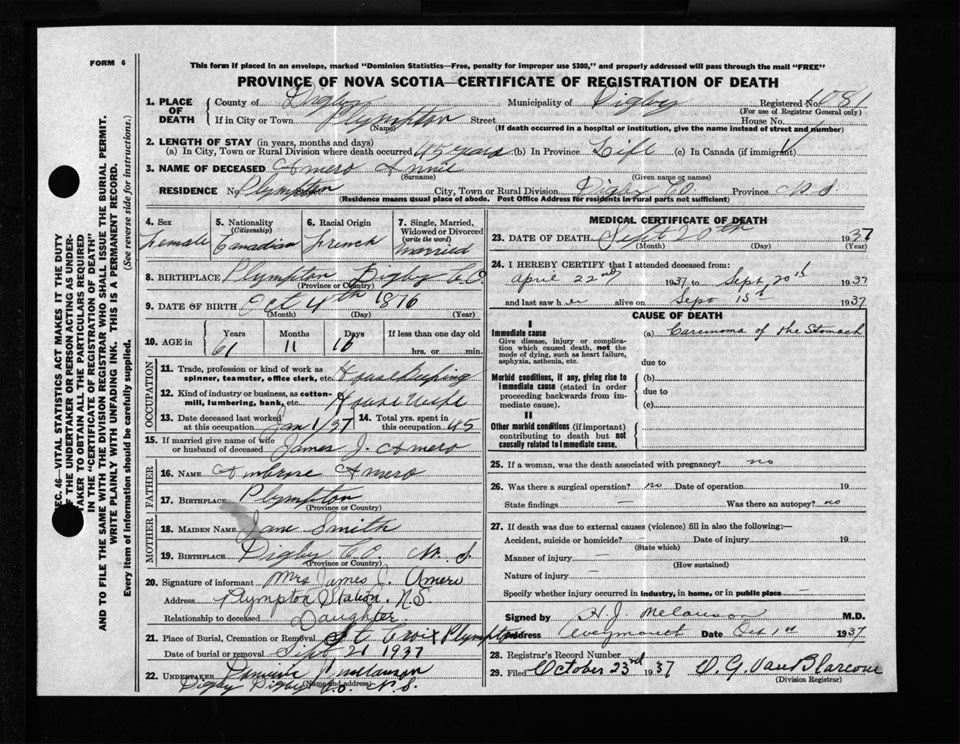 FORM 6
This form if placed in an envelope, marked "Dominion Statistics—Free, penalty for improper use $300," and properly addressed will pass through the mail "FREE"
PROVINCE OF NOVA SCOTIA—CERTIFICATE OF REGISTRATION OF DEATH
1. PLACE OF DEATH { County of Digby Municipality of Digby Registered No. 1081
(For use of Registrar General only)
If in City or Town Plympton Street House No.
(Name) (If death occurred in a hospital or institution, give the name instead of street and number)
2. LENGTH OF STAY (in years, months and days)
(a) In City, Town or Rural Division where death occurred 45 years (b) In Province Life (c) In Canada (if immigrant)
3. NAME OF DECEASED Amero Annie
(Surname) (Given name or names)
RESIDENCE No. Plympton City, Town or Rural Division Digby Co Province N.S.
(Residence means usual place of abode. Post Office Address for residents in rural parts not sufficient)
4. Sex Female
5. Nationality (Citizenship) Canadian
6. Racial Origin French
7. Single, Married, Widowed or Divorced (write the word) Married
8. BIRTHPLACE Plympton Digby Co.
(Province or Country)
9. DATE OF BIRTH Oct 4th 1876
(Month) (Day) (Year)
10. AGE in Years Months Days If less than one day old
61 11 16 hrs. or min.
OCCUPATION
11. Trade, profession or kind of work as spinner, teamster, office clerk, etc. House Keeping
12. Kind of industry or business, as cotton-mill, lumbering, bank, etc. House Wife
13. Date deceased last worked at this occupation Jan 1/37
14. Total yrs. spent in this occupation 45
15. If married give name of wife or husband of deceased James J. Amero
FATHER
16. NAME Ambrose Amero
17. BIRTHPLACE Plympton
(Province or Country)
MOTHER
18. MAIDEN NAME Jane Smith
19. BIRTHPLACE Digby Co. N.S.
(Province or Country)
20. Signature of informant Mrs James J. Amero
Address Plympton Station. N.S.
Relationship to deceased Daughter.
21. Place of Burial, Cremation or Removal St Croix Plympton
Date of burial or removal Sept 21 1937
22. UNDERTAKER
Digby Digby Co. N.S.
(Name and address)
MEDICAL CERTIFICATE OF DEATH
23. DATE OF DEATH Sept 20th 1937
(Month) (Day) (Year)
24. I HEREBY CERTIFY that I attended deceased from:
April 22nd 1937 to Sept. 20th 1937
and last saw her alive on Sept 15th 1937
CAUSE OF DEATH
I
Immediate cause
Give disease, injury or complication which caused death, not the mode of dying, such as heart failure, asphyxia, asthenia, etc.
(a) Carcinoma of the Stomach
due to
Morbid conditions, if any, giving rise to immediate cause (stated in order proceeding backwards from immediate cause).
(b)
due to
(c)
II
Other morbid conditions (if important) contributing to death but not causally related to immediate cause.
25. If a woman, was the death associated with pregnancy? no
26. Was there a surgical operation? no Date of operation 19
State findings — Was there an autopsy? no
27. If death was due to external causes (violence) fill in also the following:—
Accident, suicide or homicide? — Date of injury 19
(State which)
Manner of injury —
(How sustained)
Nature of injury —
Specify whether injury occurred in industry, in home, or in public place —
Signed by H. J. Melanson M.D.
Address Weymouth Date Oct 1st 1937
28. Registrar's Record Number
29. Filed October 23rd 1937 W. G. Van Blarcom
(Division Registrar)
SEC. 46—VITAL STATISTICS ACT MAKES IT THE DUTY
OF THE UNDERTAKER OR PERSON ACTING AS UNDER-
TAKER TO OBTAIN ALL THE PARTICULARS REQUIRED
IN THE "CERTIFICATE OF REGISTRATION OF DEATH"
AND TO FILE THE SAME WITH THE DIVISION REGISTRAR WHO SHALL ISSUE THE BURIAL PERMIT.
WRITE PLAINLY WITH UNFADING INK. THIS IS A PERMANENT RECORD.
Every item of information should be carefully supplied. (See reverse side for instructions.)